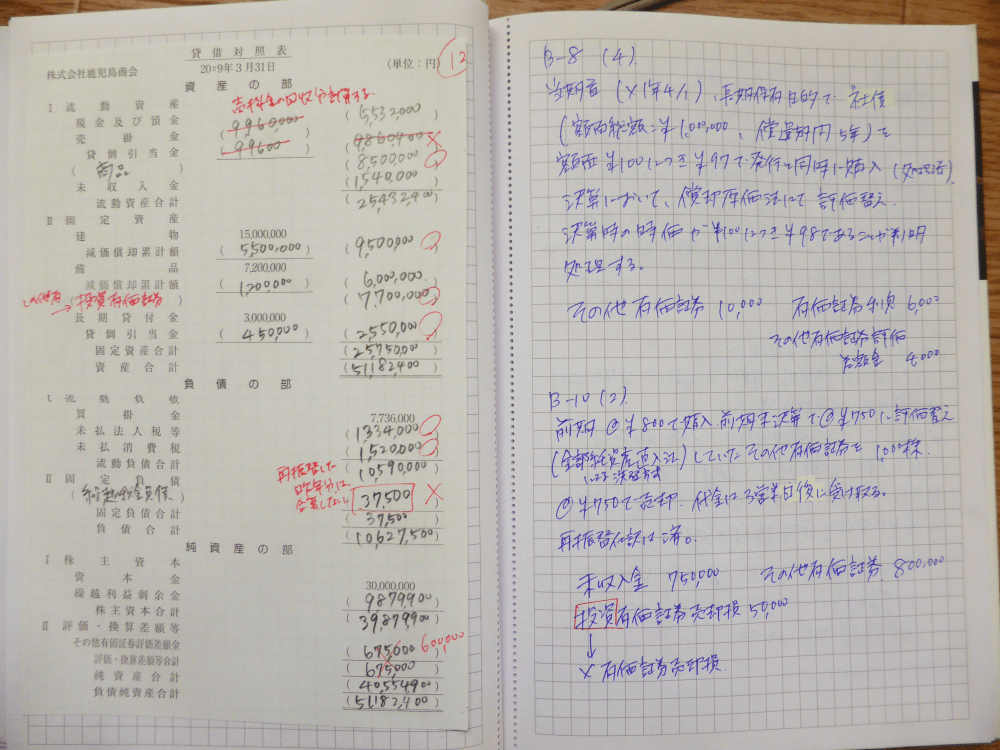 貸借対照表
株式会社鹿児島商会 20×9年3月31日 (単位:円) 12
資産の部
売掛金の回収が計算する
I 流動資産
現金及び預金 5,532,000
売掛金 (9,960,000) (9860,400) ×
貸倒引当金 (99600)
(商品) (8500,000)
未収入金 (1,540,000)
流動資産合計 (25,432,400)
II 固定資産
建物 15,000,000
減価償却累計額 (5,500,000) (9,500,000)
備品 7,200,000
減価償却累計額 (1,200,000) (6,000,000)
その他有 → (投資有価証券) (7,700,000)
長期貸付金 3,000,000
貸倒引当金 (450,000) (2,550,000)
固定資産合計 (25,750,000)
資産合計 (51,182,400)
負債の部
I 流動負債
買掛金 7,736,000
未払法人税等 (1,334,000)
未払消費税 (1,520,000)
流動負債合計 (10,590,000)
再振替した
昨年分は
含まない
II 固定負債
(繰延税金負債) (37,500) ×
固定負債合計 (37,500)
負債合計 (10,627,500)
純資産の部
I 株主資本
資本金 30,000,000
繰越利益剰余金 (9879,900)
株主資本合計 (39,879,900)
II 評価・換算差額等
その他有価証券評価差額金 (675,000) 600,000
評価・換算差額等合計 (675,000)
純資産合計 (40,554,900)
負債純資産合計 (51,182,400)
B-8 (4)
当期首(×1年4/1)、長期保有目的で社債
(額面総額:¥1,000,000、償還期間5年)を
額面¥100につき¥97で発行と同時に購入(処理済).
決算において、償却原価法にて評価替え.
決算時の時価が¥100につき¥98であることが判明
処理する。
その他有価証券 10,000 有価証券利息 6,000
その他有価証券評価
差額金 4,000
B-10 (2)
前期@¥800で購入.前期末決算で@¥750に評価替え
(全部純資産直入法)していたその他有価証券を1,000株
による洗替方式
@¥750で売却.代金は3営業日後に受け取る。
再振替仕訳は済。
未収入金 750,000 その他有価証券 800,000
投資有価証券売却損 50,000
↓
× 有価証券売却損